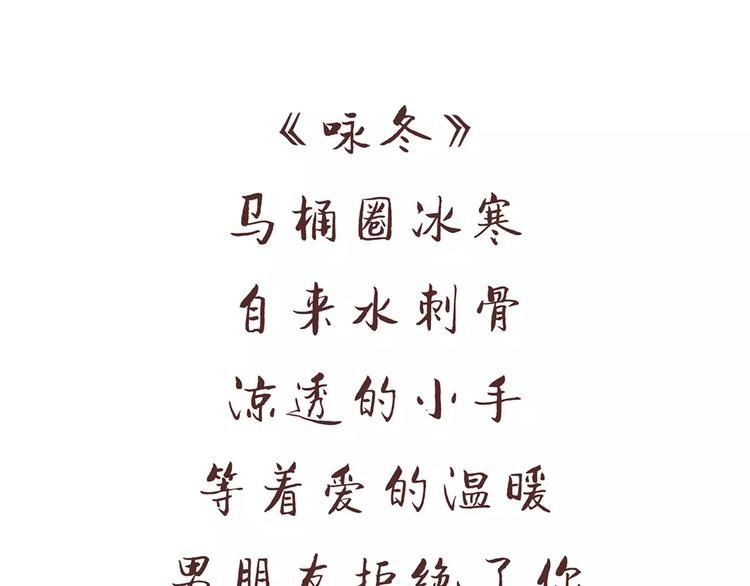 《咏冬》
马桶圈冰寒
自来水刺骨
凉透的小手
等着爱的温暖
男朋友拒绝了你